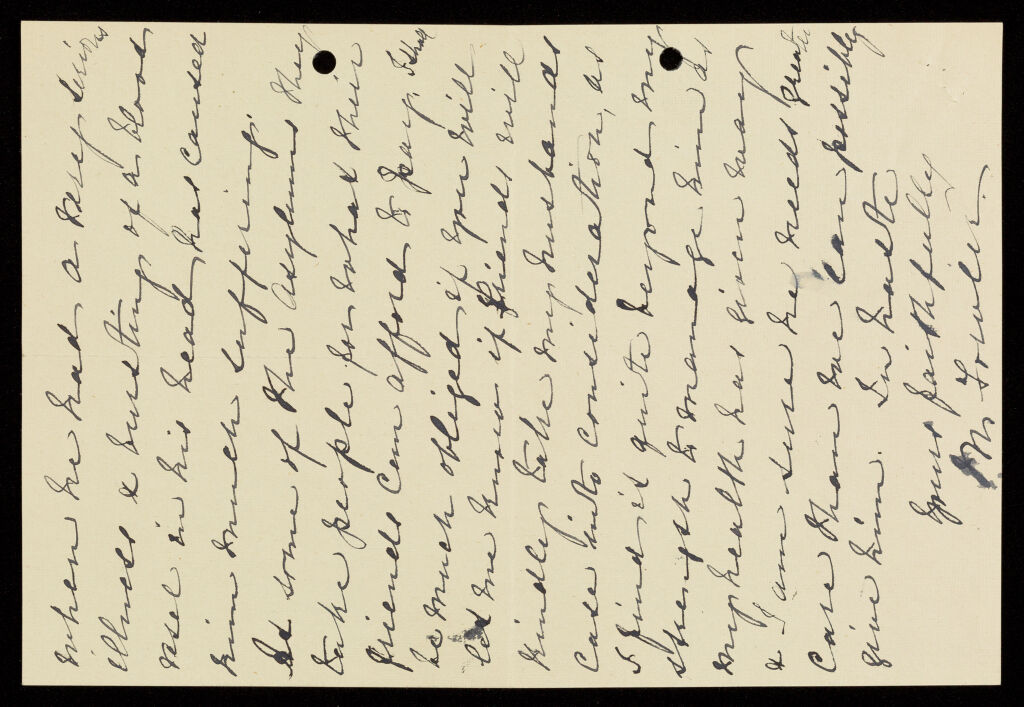 when he had a very serious
illness & bursting of a blood
vesel in his head has caused
him much suffering.
As some of the Asylums they
take people for what their
friends can afford to pay I shall
be much obliged if you will
let me know if friends will
kindly take my husbands
case into consideration, as
I find it quite beyond my
strength to manage him as
my health has given way
& I am sure he needs greater
care than we can possibly
give him. In haste
yours faithfully
M